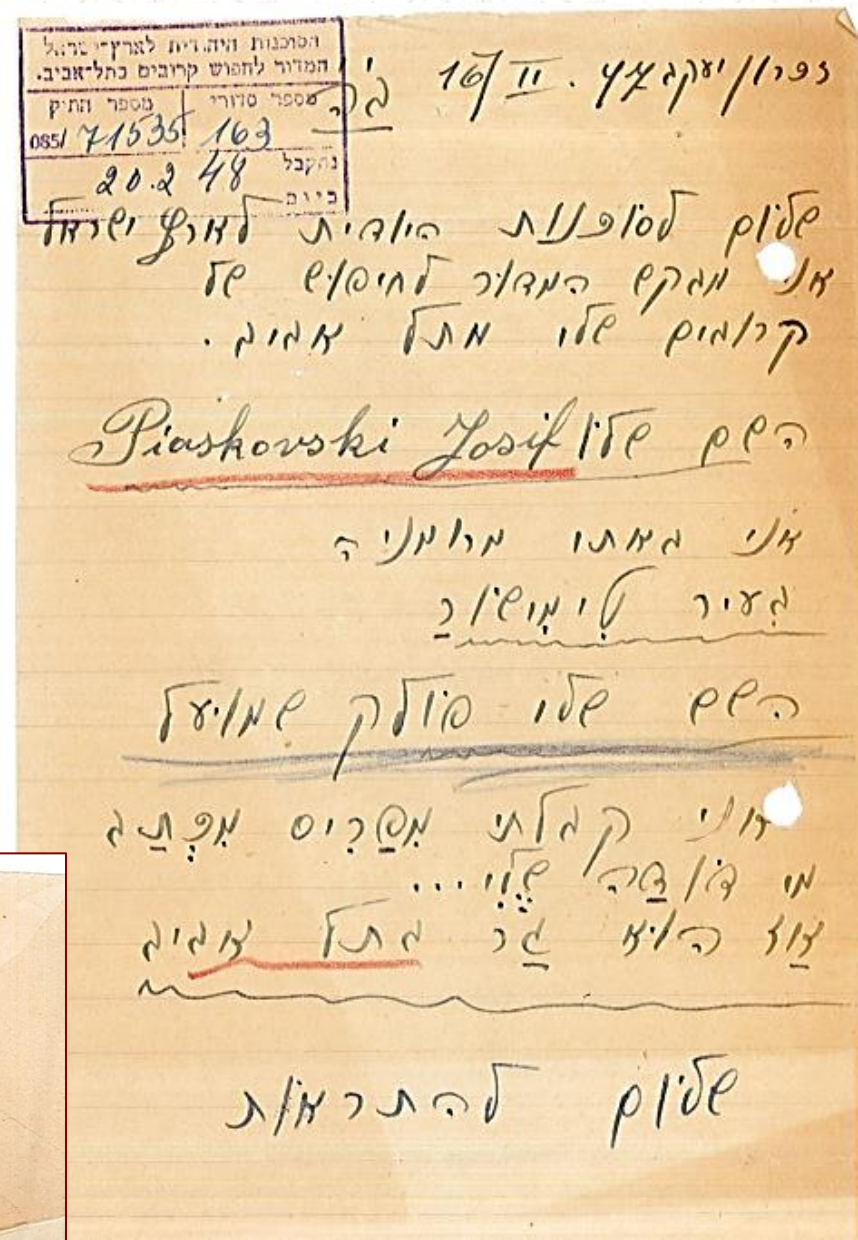 הסוכנות היהודית לארץ־ישראל
המדור לחפוש קרובים בתל־אביב.
מספר סדורי מספר התיק
163 085/ 71535
נתקבל
ביום 20.2 48
זכרון יעקב 16/II.
שלום לסוכנות היודית לארץ ישראל
אני מבקש המדור לחיפוש של
קרובים שלי מתל אביב.
השם שלו Piaskovski Josif
אני באתי מרומניה
בְעיר טִימִישׁוֹרַ
השם שלי פולק שמויעל
אני קבלתי מִפַּרִיס מִכְתַב
מי דוֹדַה שֶׁלִי...
אַז הויא גַר בתל אביב
שלום להתראות